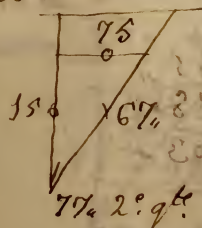 75
15 67"
77" 2e. qte.